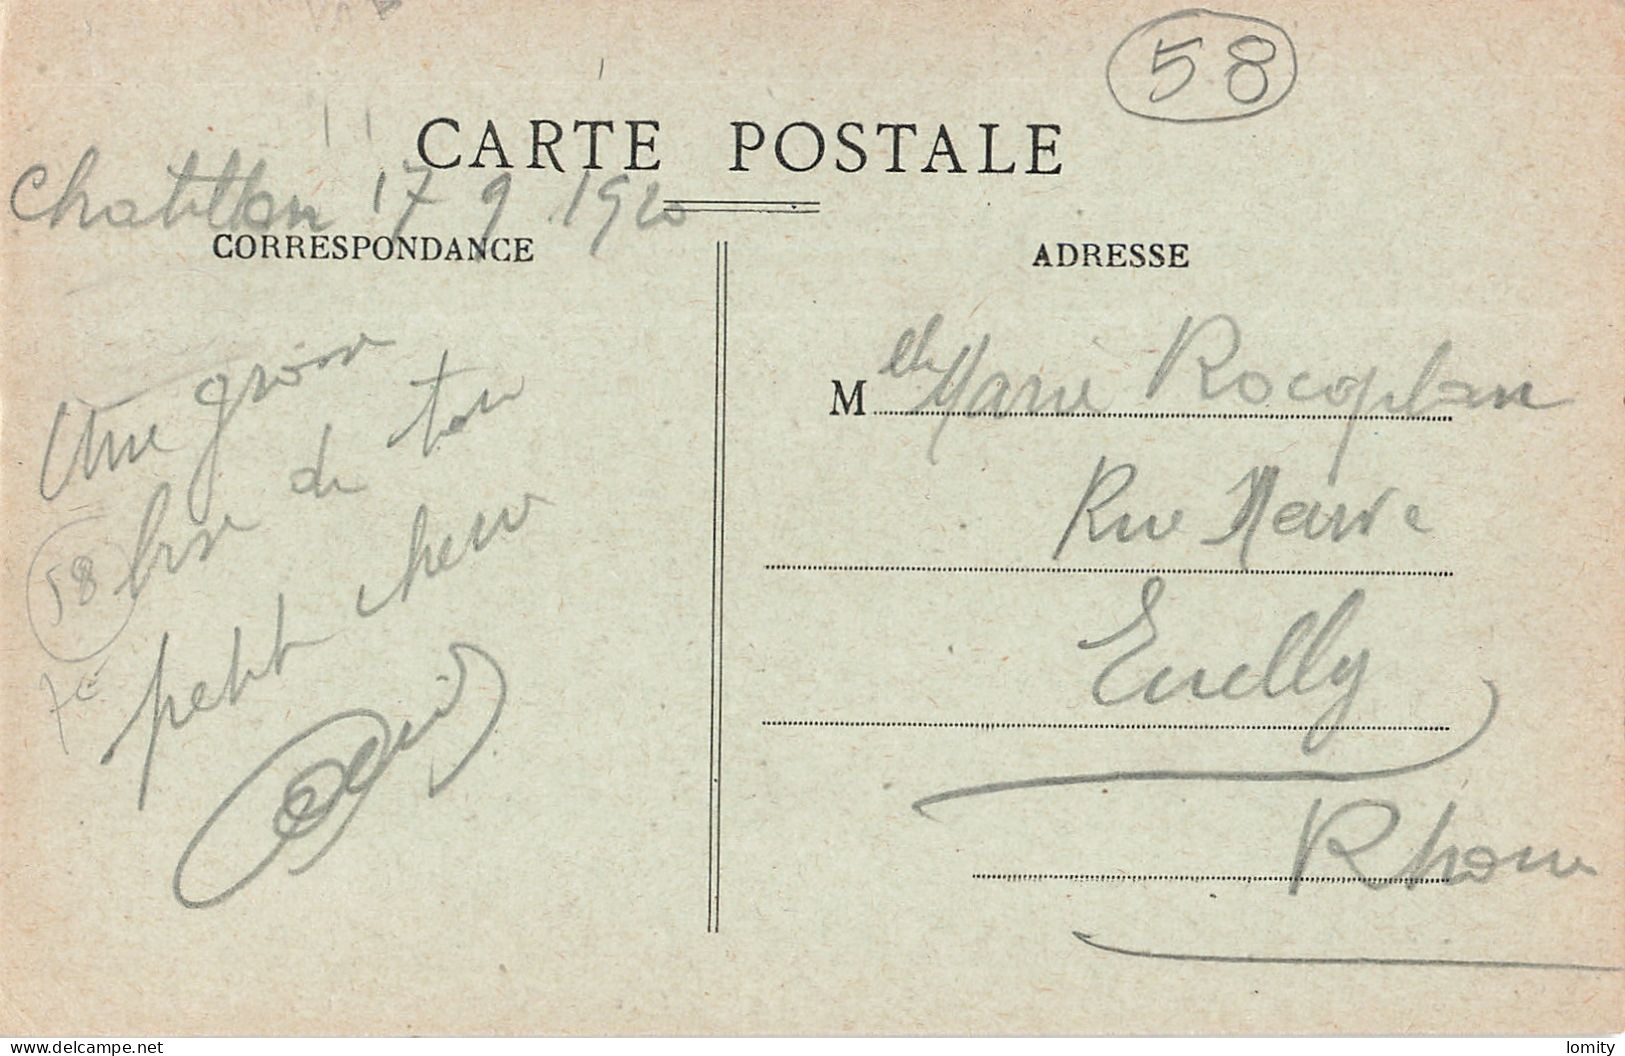 58
CARTE POSTALE
Chatillon 17 9 1920
CORRESPONDANCE
Une grosse
bise de ton
petit cheri
58
ADRESSE
Melle Marie Rocoplan
Rue Marie
Ecully
Rhone
delcampe.net
lomity